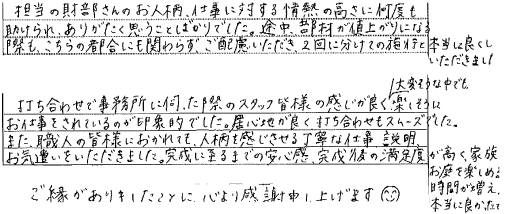 担当の財部さんのお人柄、仕事に対する情熱の高さに何度も
助けられ、ありがたく思うことばかりでした。途中、部材が値上がりになる
際も、こちらの都合にも関わらず、ご配慮いただき、2回に分けての施行と
本当に良くし
ていただきました!
大変そうな中でも、
打ち合わせで事務所に伺った際のスタッフ皆様の感じが良く楽しそうに
お仕事をされているのが印象的でした。居心地が良く打ち合わせもスムーズでした。
また、職人の皆様におかれても、人柄を感じさせる丁寧な仕事、説明、
お気遣いをいただきました。完成に至るまでの安心感、完成後の満足度
が高く、家族
お庭を楽しめる
時間が増え、
本当に良かったで
ご縁がありましたことに、心より感謝申し上げます